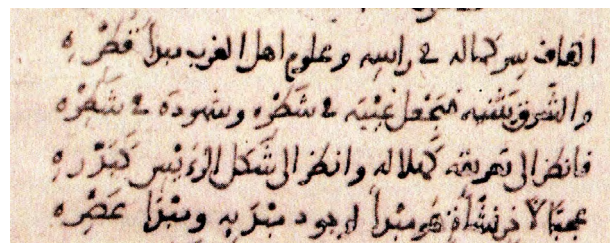 القاف سر كماله في راسه وعلوم اهل الغرب مبدأ قطْره
والشَّرق يَثنيه فيَجْعل غيْبَه في شَطْره وشهوده في شَطْره
فانظر الى تعريقه كهلاله وانظر الى شَكل الرءَيْس كبَدْره
عجبًا لاخر نشْأة هو مبْدأ لوجود مبْديه ومبْدَأ عَصْره